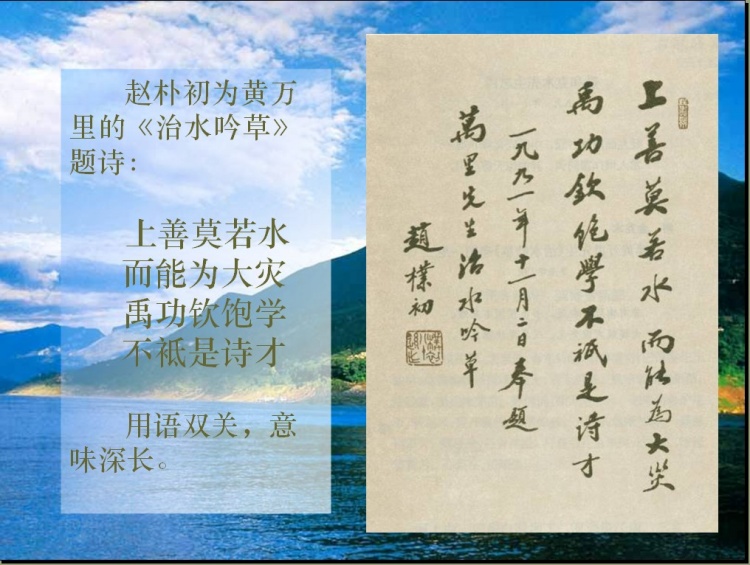 赵朴初为黄万
里的《治水吟草》
题诗：
上善莫若水
而能为大灾
禹功钦饱学
不衹是诗才
用语双关，意
味深长。
上善莫若水而能為大災
禹功欽飽學不衹是诗才
一九九一年十一月二日奉題
萬里先生治水吟草
趙樸初